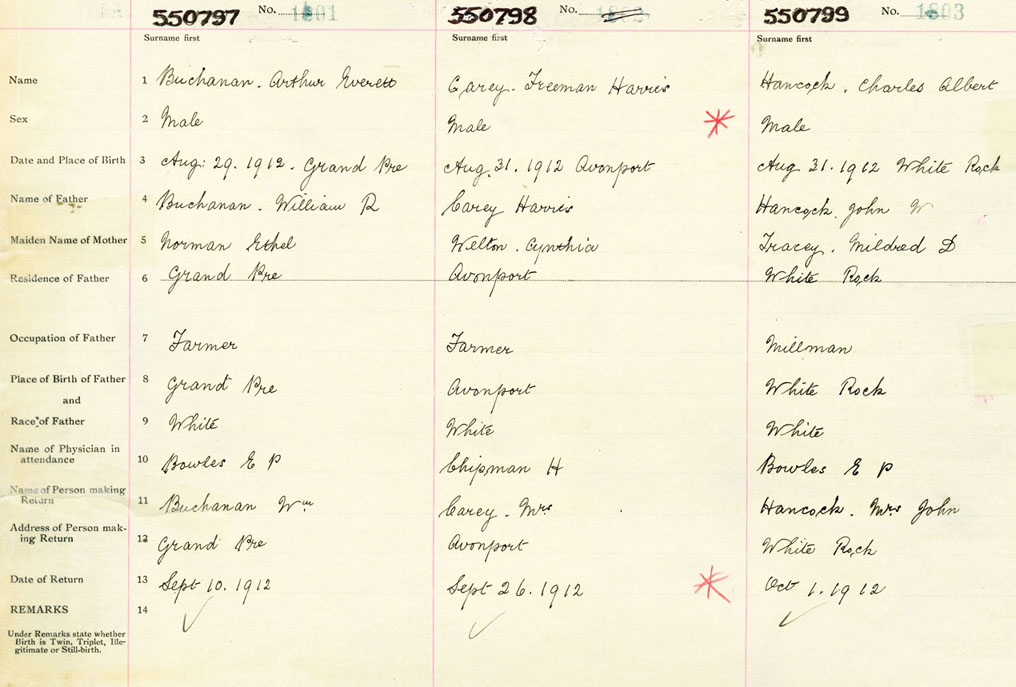 550797 No. 1801 550798 No. 550799 No. 1803
Surname first Surname first Surname first
Name 1 Buchanan. Arthur Everett Carey. Freeman Harris Hancock. Charles Albert
Sex 2 Male Male Male
Date and Place of Birth 3 Aug: 29. 1912. Grand Pre Aug. 31. 1912 Avonport Aug 31. 1912 White Rock
Name of Father 4 Buchanan. William R Carey Harris Hancock John W
Maiden Name of Mother 5 Norman Ethel Welton. Cynthia Tracey. Mildred D
Residence of Father 6 Grand Pre Avonport White Rock
Occupation of Father 7 Farmer Farmer Millman
Place of Birth of Father 8 Grand Pre Avonport White Rock
and
Race of Father 9 White White White
Name of Physician in
attendance 10 Bowles E P Chipman H Bowles E P
Name of Person making
Return 11 Buchanan Wm Carey. Mrs Hancock. Mrs John
Address of Person mak-
ing Return 12 Grand Pre Avonport White Rock
Date of Return 13 Sept 10. 1912 Sept 26. 1912 Oct 1. 1912
REMARKS 14
Under Remarks state whether
Birth is Twin, Triplet, Ille-
gitimate or Still-birth.